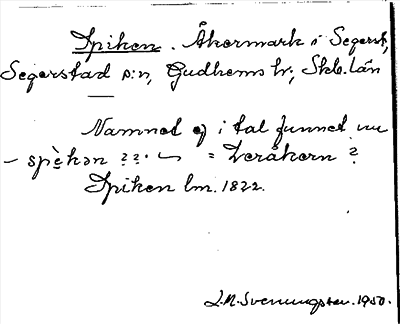 Spiken. Åkermark i Segerst,
Segerstad s:n, Gudhems hr, Skb. län
Namnet ej i tal funnet nu
– spèkən ??. = ?
Spiken lm. 1822.
1950.